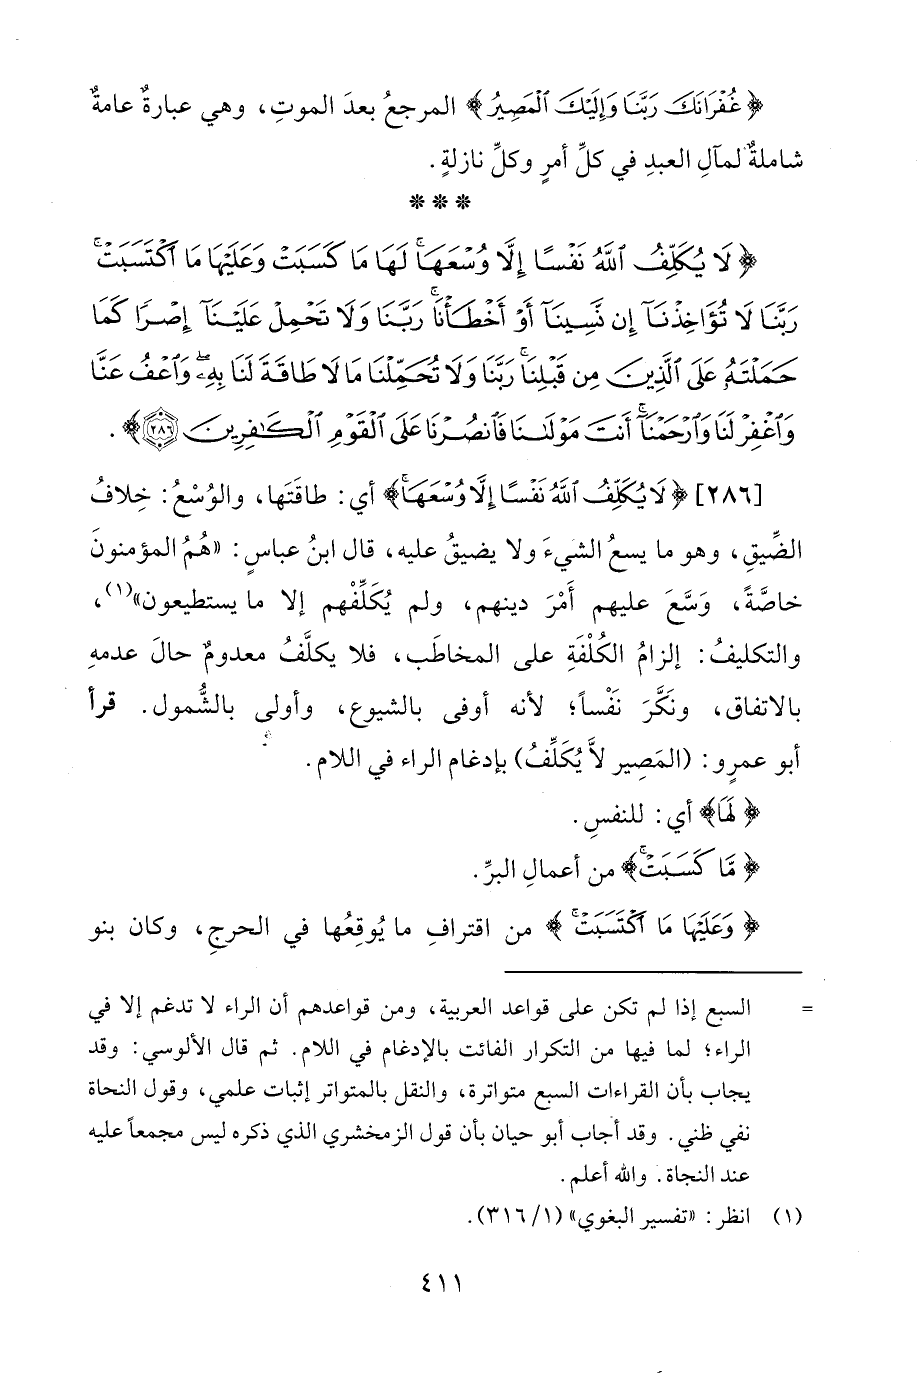 ﴿ غُفْرَانَكَ رَبَّنَا وَإِلَيْكَ الْمَصِيرُ ﴾ المرجعُ بعدَ الموتِ، وهي عبارةٌ عامةٌ
شاملةٌ لمآلِ العبدِ في كلِّ أمرٍ وكلِّ نازلةٍ.
* * *
﴿ لَا يُكَلِّفُ ٱللَّهُ نَفْسًا إِلَّا وُسْعَهَا ۚ لَهَا مَا كَسَبَتْ وَعَلَيْهَا مَا ٱكْتَسَبَتْ ۗ
رَبَّنَا لَا تُؤَاخِذْنَآ إِن نَّسِينَآ أَوْ أَخْطَأْنَا ۚ رَبَّنَا وَلَا تَحْمِلْ عَلَيْنَآ إِصْرًا كَمَا
حَمَلْتَهُۥ عَلَى ٱلَّذِينَ مِن قَبْلِنَا ۚ رَبَّنَا وَلَا تُحَمِّلْنَا مَا لَا طَاقَةَ لَنَا بِهِۦ ۖ وَٱعْفُ عَنَّا
وَٱغْفِرْ لَنَا وَٱرْحَمْنَآ ۚ أَنتَ مَوْلَىٰنَا فَٱنصُرْنَا عَلَى ٱلْقَوْمِ ٱلْكَٰفِرِينَ ٢٨٦ ﴾ .
[٢٨٦] ﴿ لَا يُكَلِّفُ ٱللَّهُ نَفْسًا إِلَّا وُسْعَهَا ۚ﴾ أي: طاقَتَها، والوُسْعُ: خِلافُ
الضِّيقِ، وهو ما يسعُ الشيءَ ولا يضيقُ عليه، قال ابنُ عباسٍ: «هُمُ المؤمنونَ
خاصَّةً، وَسَّعَ عليهم أَمْرَ دينهم، ولم يُكَلِّفْهم إلا ما يستطيعون»(١)،
والتكليفُ: إلزامُ الكُلْفَةِ على المخاطَب، فلا يكلَّفُ معدومٌ حالَ عدمهِ
بالاتفاق، ونَكَّرَ نَفْساً؛ لأنه أوفى بالشيوع، وأولى بالشُّمول. قرأ
أبو عمرٍو: (المَصِير لاَّ يُكَلِّفُ) بإدغام الراء في اللام.
﴿ لَهَا﴾ أي: للنفسِ.
﴿ مَّا كَسَبَتْ ۚ﴾ من أعمالِ البرِّ.
﴿ وَعَلَيْهَا مَا ٱكْتَسَبَتْ ۚ ﴾ من اقترافِ ما يُوقِعُها في الحرجِ، وكان بنو
= السبع إذا لم تكن على قواعد العربية، ومن قواعدهم أن الراء لا تدغم إلا في
الراء؛ لما فيها من التكرار الفائت بالإدغام في اللام. ثم قال الألوسي: وقد
يجاب بأن القراءات السبع متواترة، والنقل بالمتواتر إثبات علمي، وقول النحاة
نفي ظني. وقد أجاب أبو حيان بأن قول الزمخشري الذي ذكره ليس مجمعاً عليه
عند النحاة. والله أعلم.
(١) انظر: «تفسير البغوي» (١/ ٣١٦).
٤١١